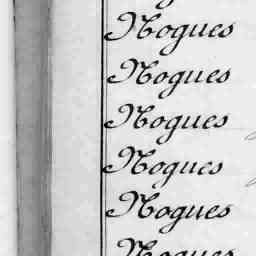 Nogues
Nogues
Nogues
Nogues
Nogues
Nogues